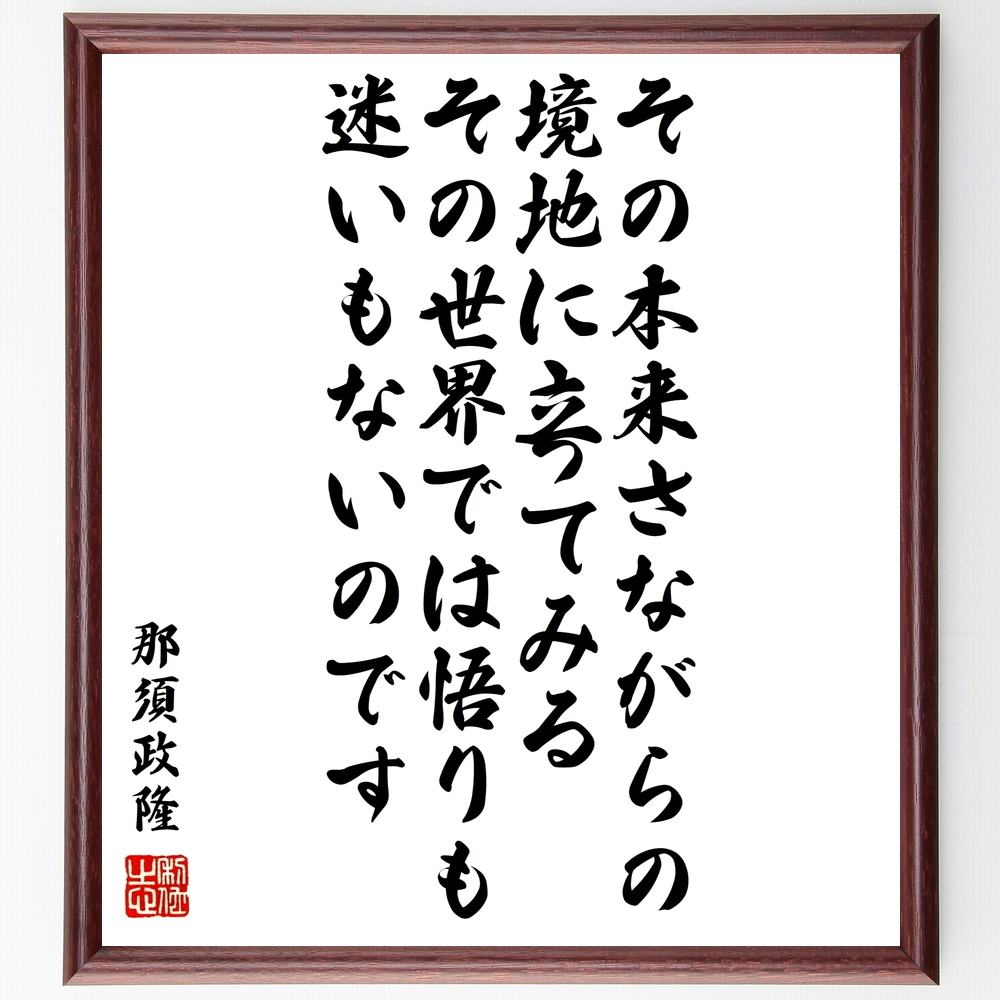 その本来さながらの
境地に立ってみる
その世界では悟りも
迷いもないのです
那須政隆